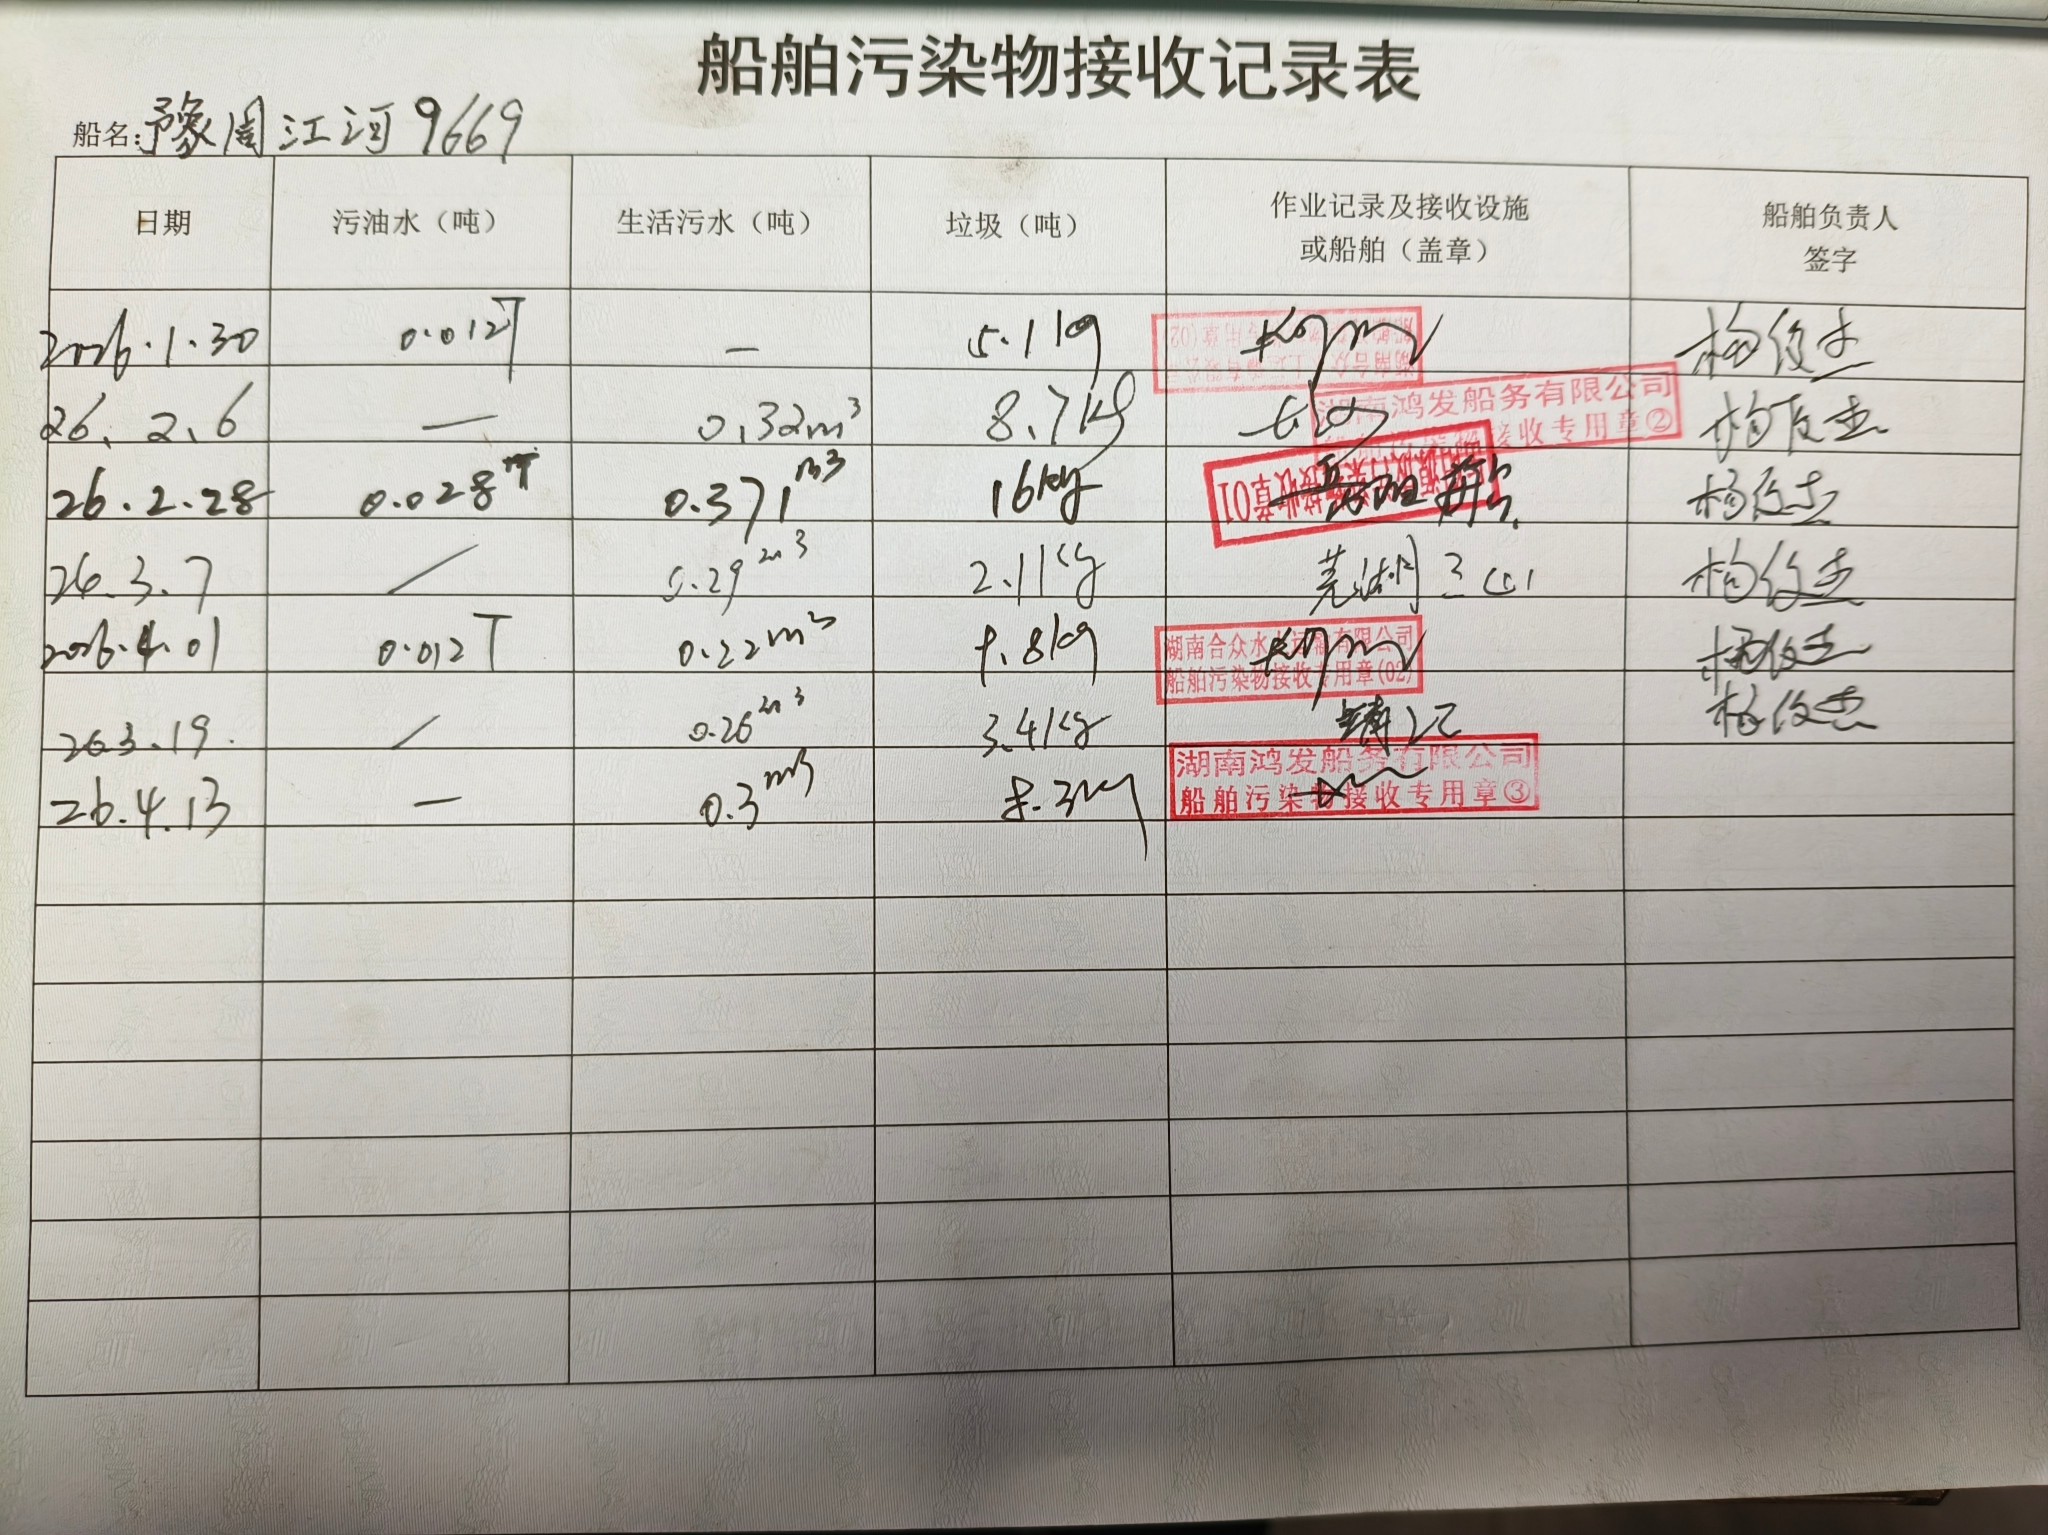 船舶污染物接收记录表
船名:豫周江河9669
日期 污油水（吨） 生活污水（吨） 垃圾（吨） 作业记录及接收设施或船舶（盖章） 船舶负责人签字
2026.1.30 0.012T — 5.1kg 杨俊杰
26.2.6 — 0.32m³ 8.7kg 湖南鸿发船务有限公司 接收专用章② 杨俊杰
26.2.28 0.028T 0.371m³ 16kg 接收章01 杨俊杰
26.3.7 / 0.29m³ 2.1Kg 芜湖三山 杨俊杰
2026.4.01 0.012T 0.22m³ 9.8kg 湖南合众水上运输有限公司 船舶污染物接收专用章(02) 杨俊杰
26.3.19. / 0.26m³ 3.4Kg 镇江 杨俊杰
26.4.13 — 0.3m³ 8.3kg 湖南鸿发船务有限公司 船舶污染物接收专用章③